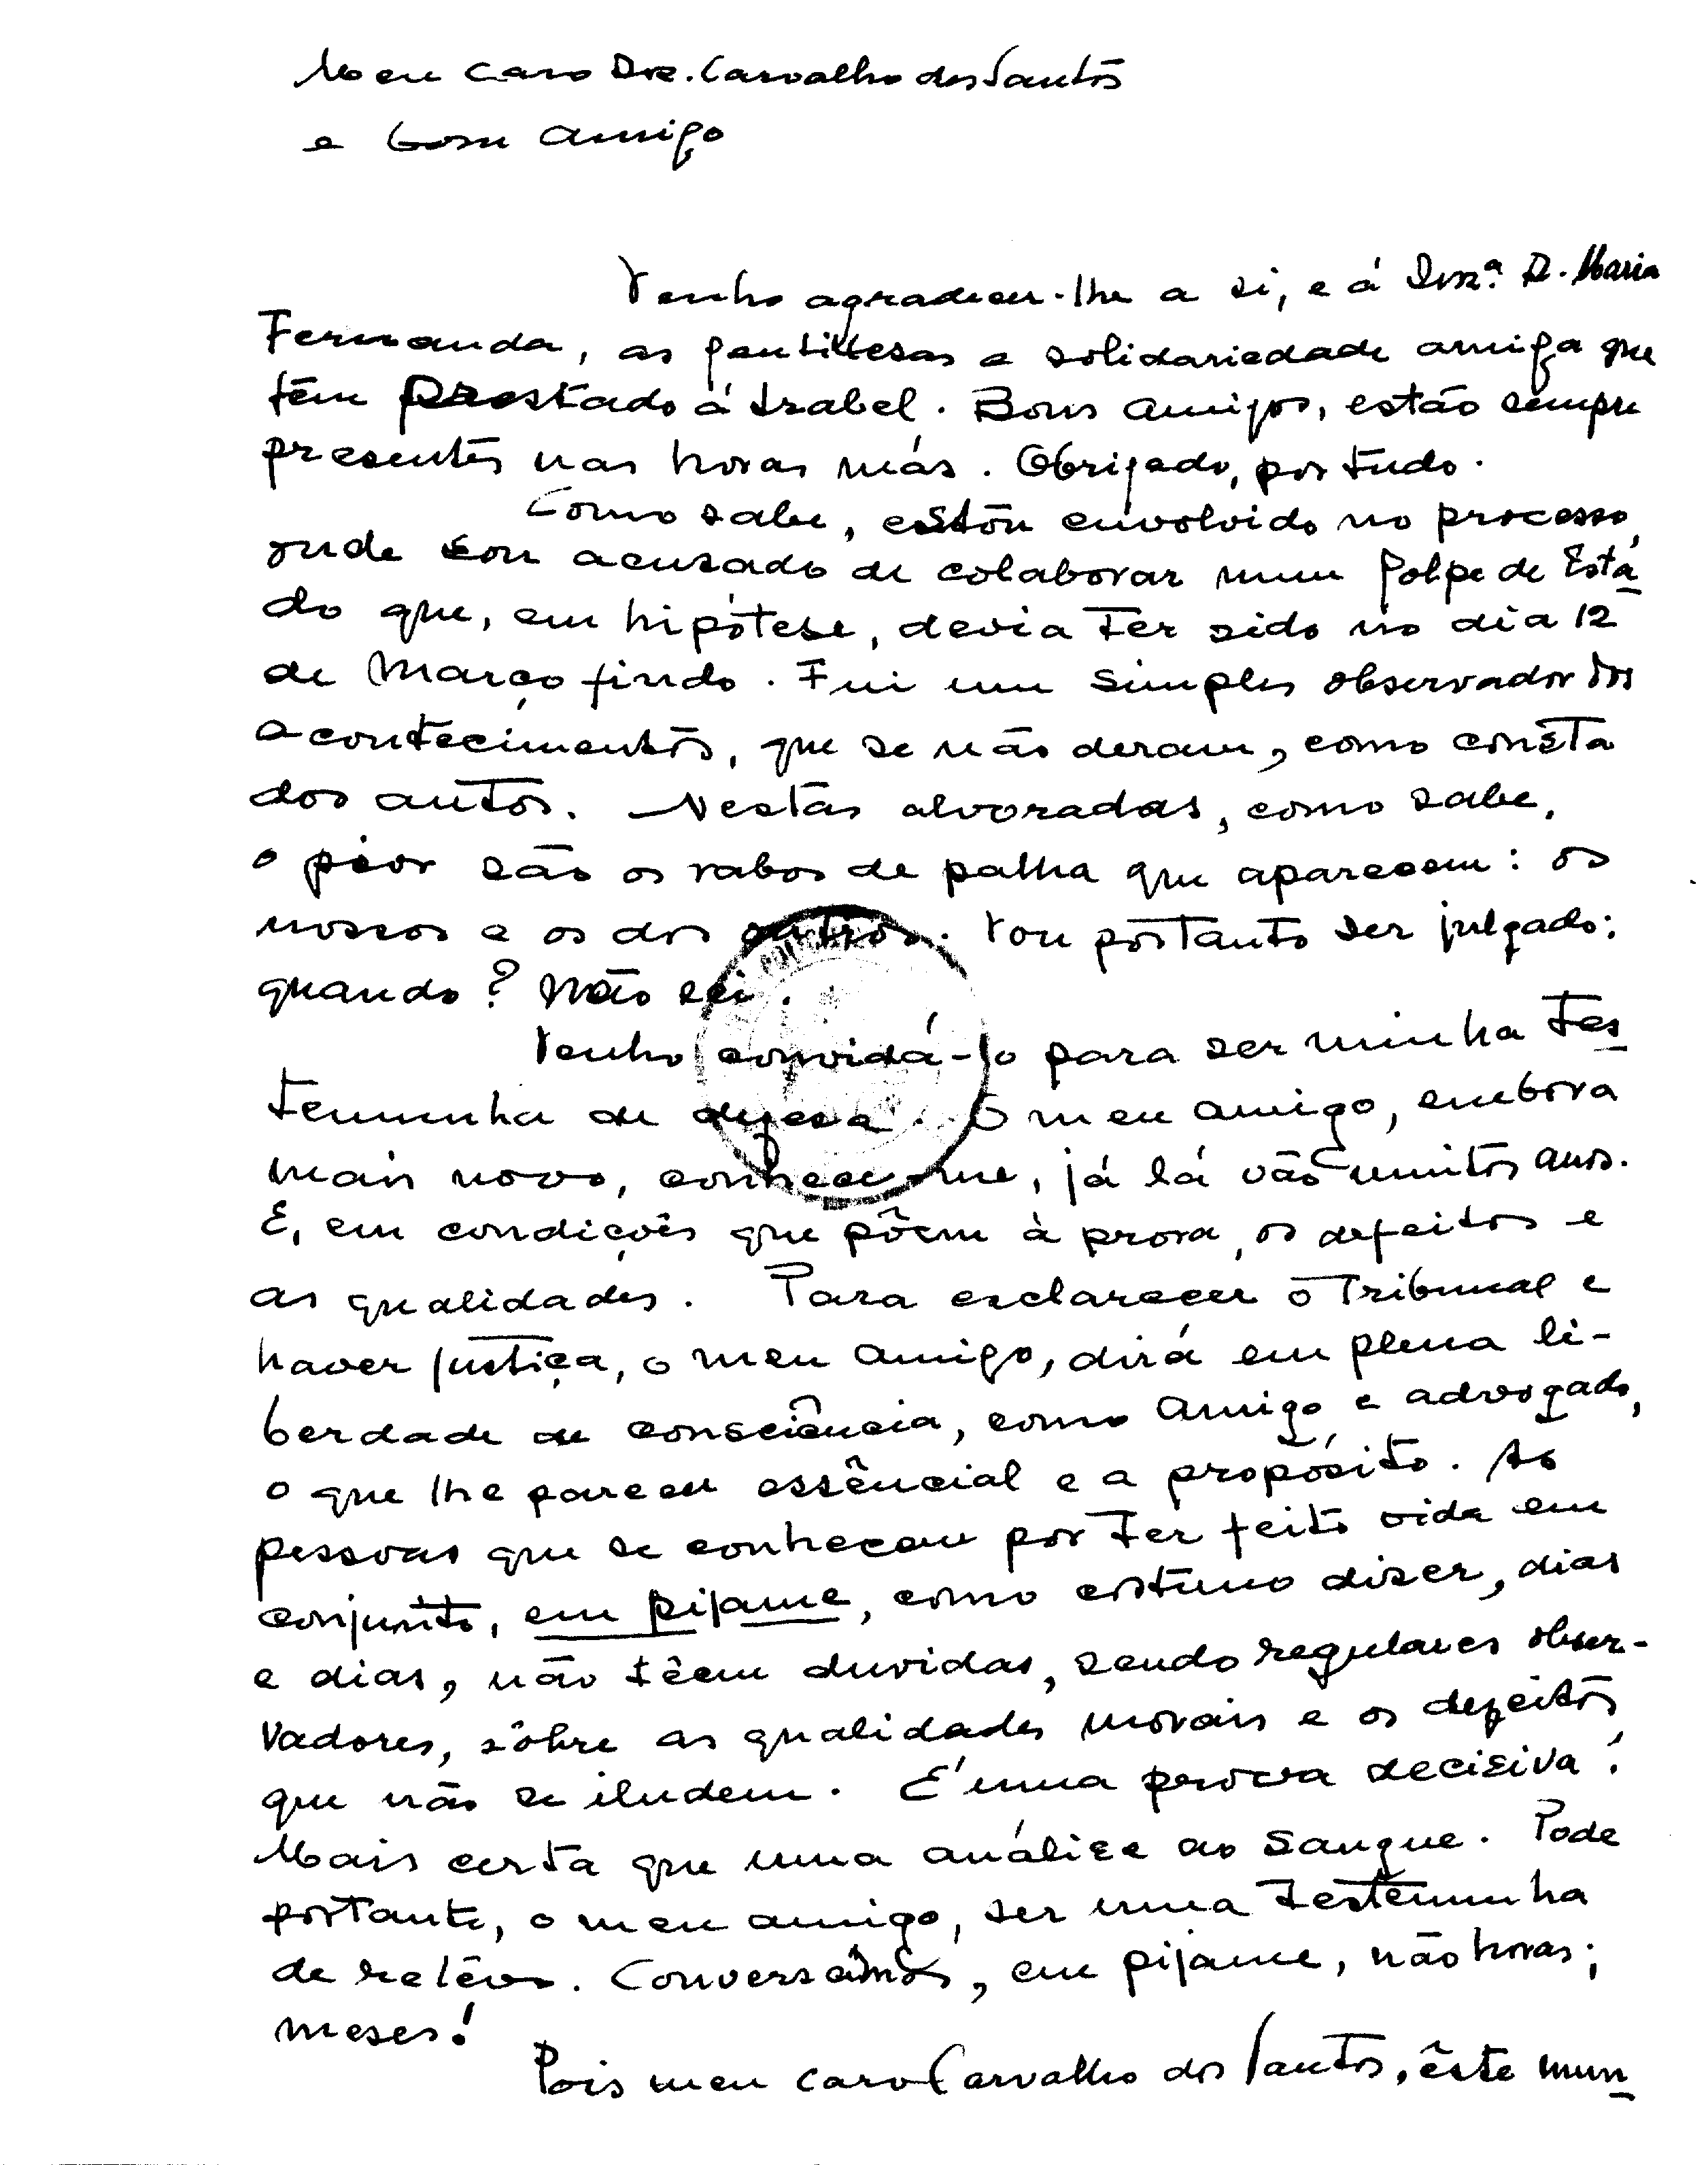 Meu caro Dr. Carvalho dos Santos
e bom amigo
Venho agradecer-lhe a si, e á Snrª. D. Maria
Fernanda, as gentilesas e solidariedade amiga que
têm prestado á Isabel. Bons amigos, estão sempre
presentes nas horas más. Obrigado, por tudo.
Como sabe, estou envolvido no processo,
onde sou acusado de colaborar num golpe de Está
do que, em hipótese, devia ter sido no dia 12
de Março findo. Fui um simples observador dos
acontecimentos, que se não deram, como consta
dos autos. Nestas alvoradas, como sabe,
o peor são os rabos de palha que aparecem: os
nossos e os dos outros. Vou portanto ser julgado:
quando? Não sei.
Venho convidá-lo para ser minha tes
temunha de defesa. O meu amigo, embora
mais novo, conhece-me, já lá vão muitos anos.
E, em condições que põem à prova, os defeitos e
as qualidades. Para esclarecer o Tribunal e
haver justiça, o meu amigo, dirá em plena li-
berdade de consciência, como amigo e advogado,
o que lhe parecer essêncial e a propósito. As
pessoas que se conhecem por ter feito vida em
conjunto, em pijame, como costumo dizer, dias
e dias, não têem duvidas, sendo regulares obser-
vadores, sôbre as qualidades morais e os defeitos
que não se iludem. É uma prova decisiva!
Mais certa que uma análise ao sangue. Pode
portanto, o meu amigo, ser uma testemunha
de relêvo. Conversámos, em pijame, não horas;
meses!
Pois meu caro Carvalho dos Santos, êste mun